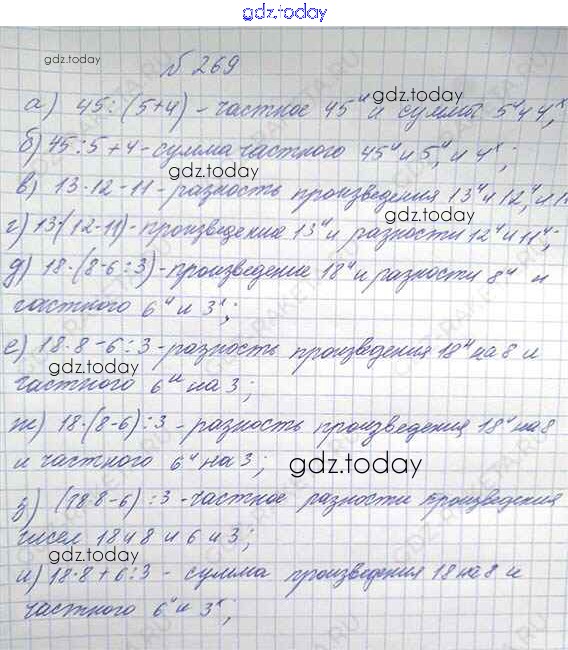 gdz.today
gdz.today
№ 269
а) 45:(5+4) - частное 45и и суммы 5и 4х;
gdz.today
б) 45:5+4 - сумма частного 45и и 5и, и 4х;
gdz.today
в) 13·12-11 - разность произведения 13и и 12и, и 1
г) 13(12-11) - произведение 13и и разности 12и и 11и;
gdz.today
gdz.today
д) 18·(8-6:3) - произведение 18и и разности 8и и
частного 6и и 3х;
gdz.today
е) 18·8-6:3 - разность произведения 18и на 8 и
частного 6и на 3;
gdz.today
ж) 18·(8-6):3 - разность произведения 18и на 8
и частного 6и на 3;
gdz.today
gdz.today
з) (18·8-6):3 - частное разности произведения
чисел 18 и 8 и 6 и 3;
gdz.today
и) 18·8+6:3 - сумма произведения 18 на 8 и
частного 6и и 3х;
gdz.today